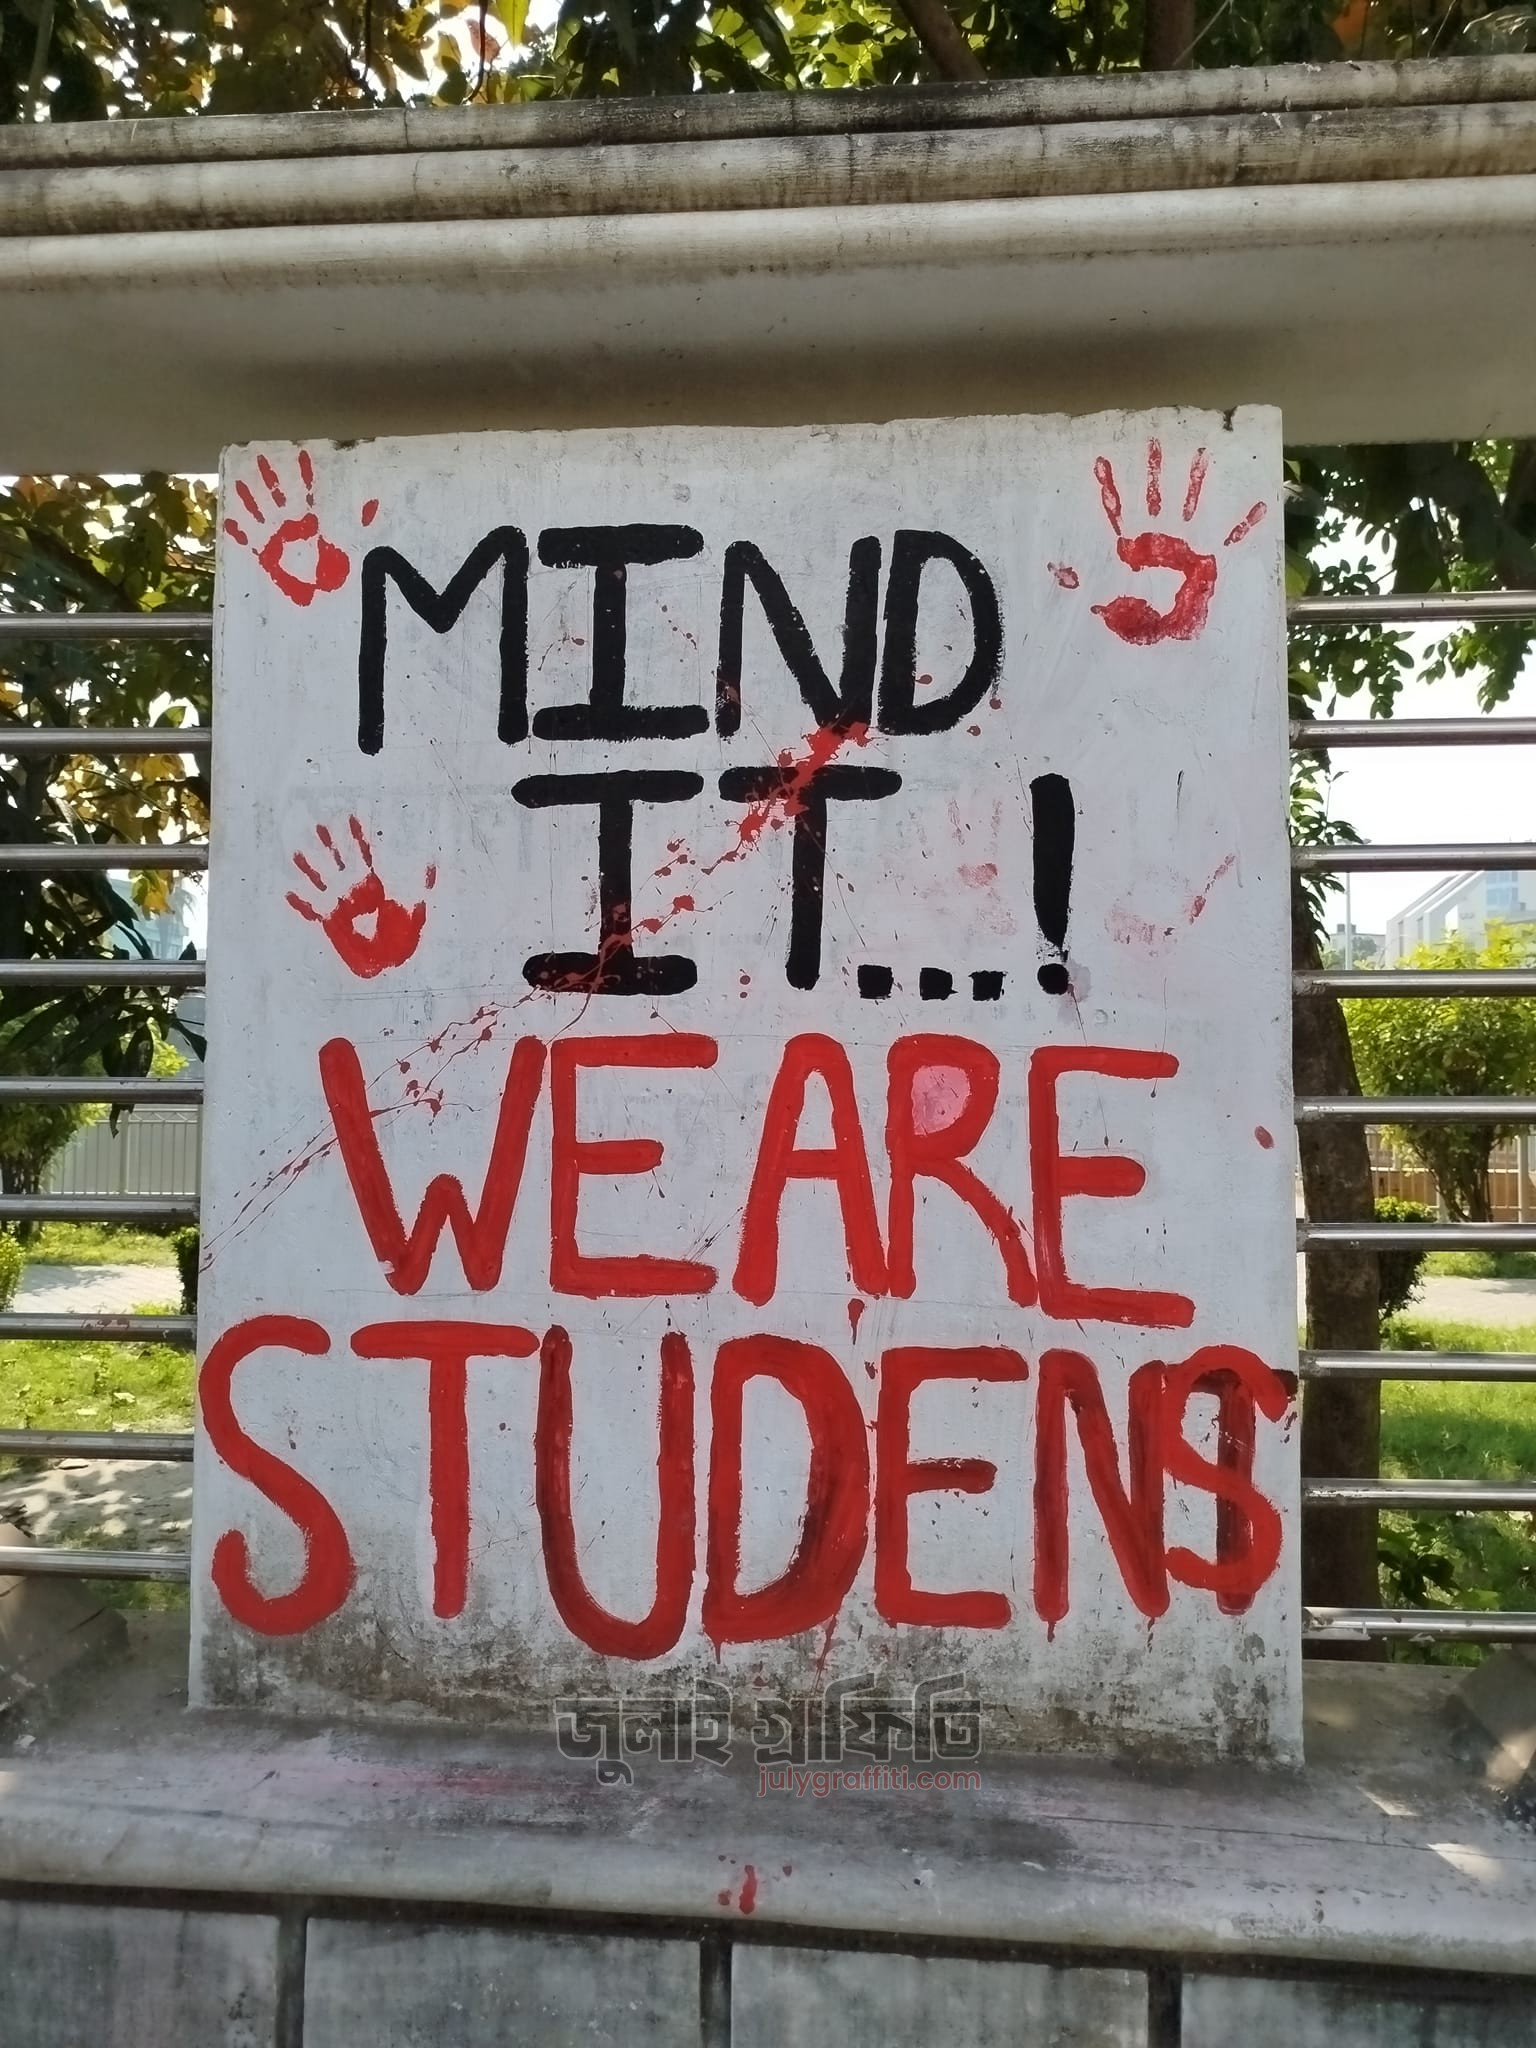 MIND
IT...!
WE ARE
STUDENS
জুলাই গ্রাফিতি
julygraffiti.com